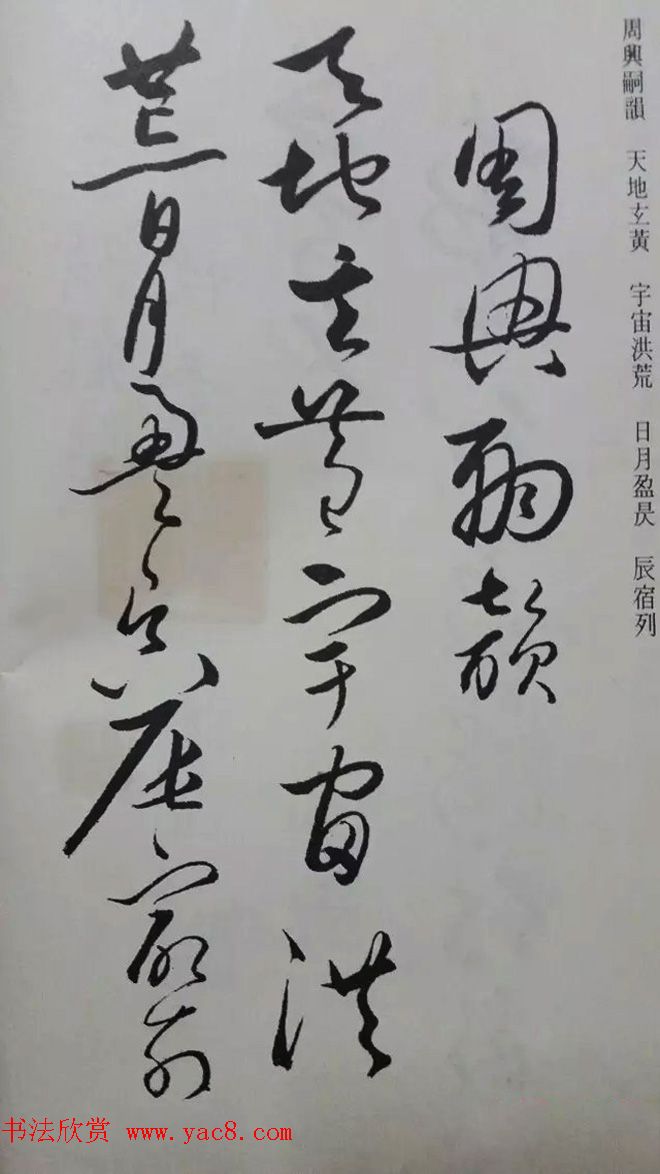 周興嗣韻 天地玄黃 宇宙洪荒 日月盈昃 辰宿列
周興嗣韻
天地玄黃宇宙洪
荒日月盈昃辰宿列
书法欣赏 www.yac8.com